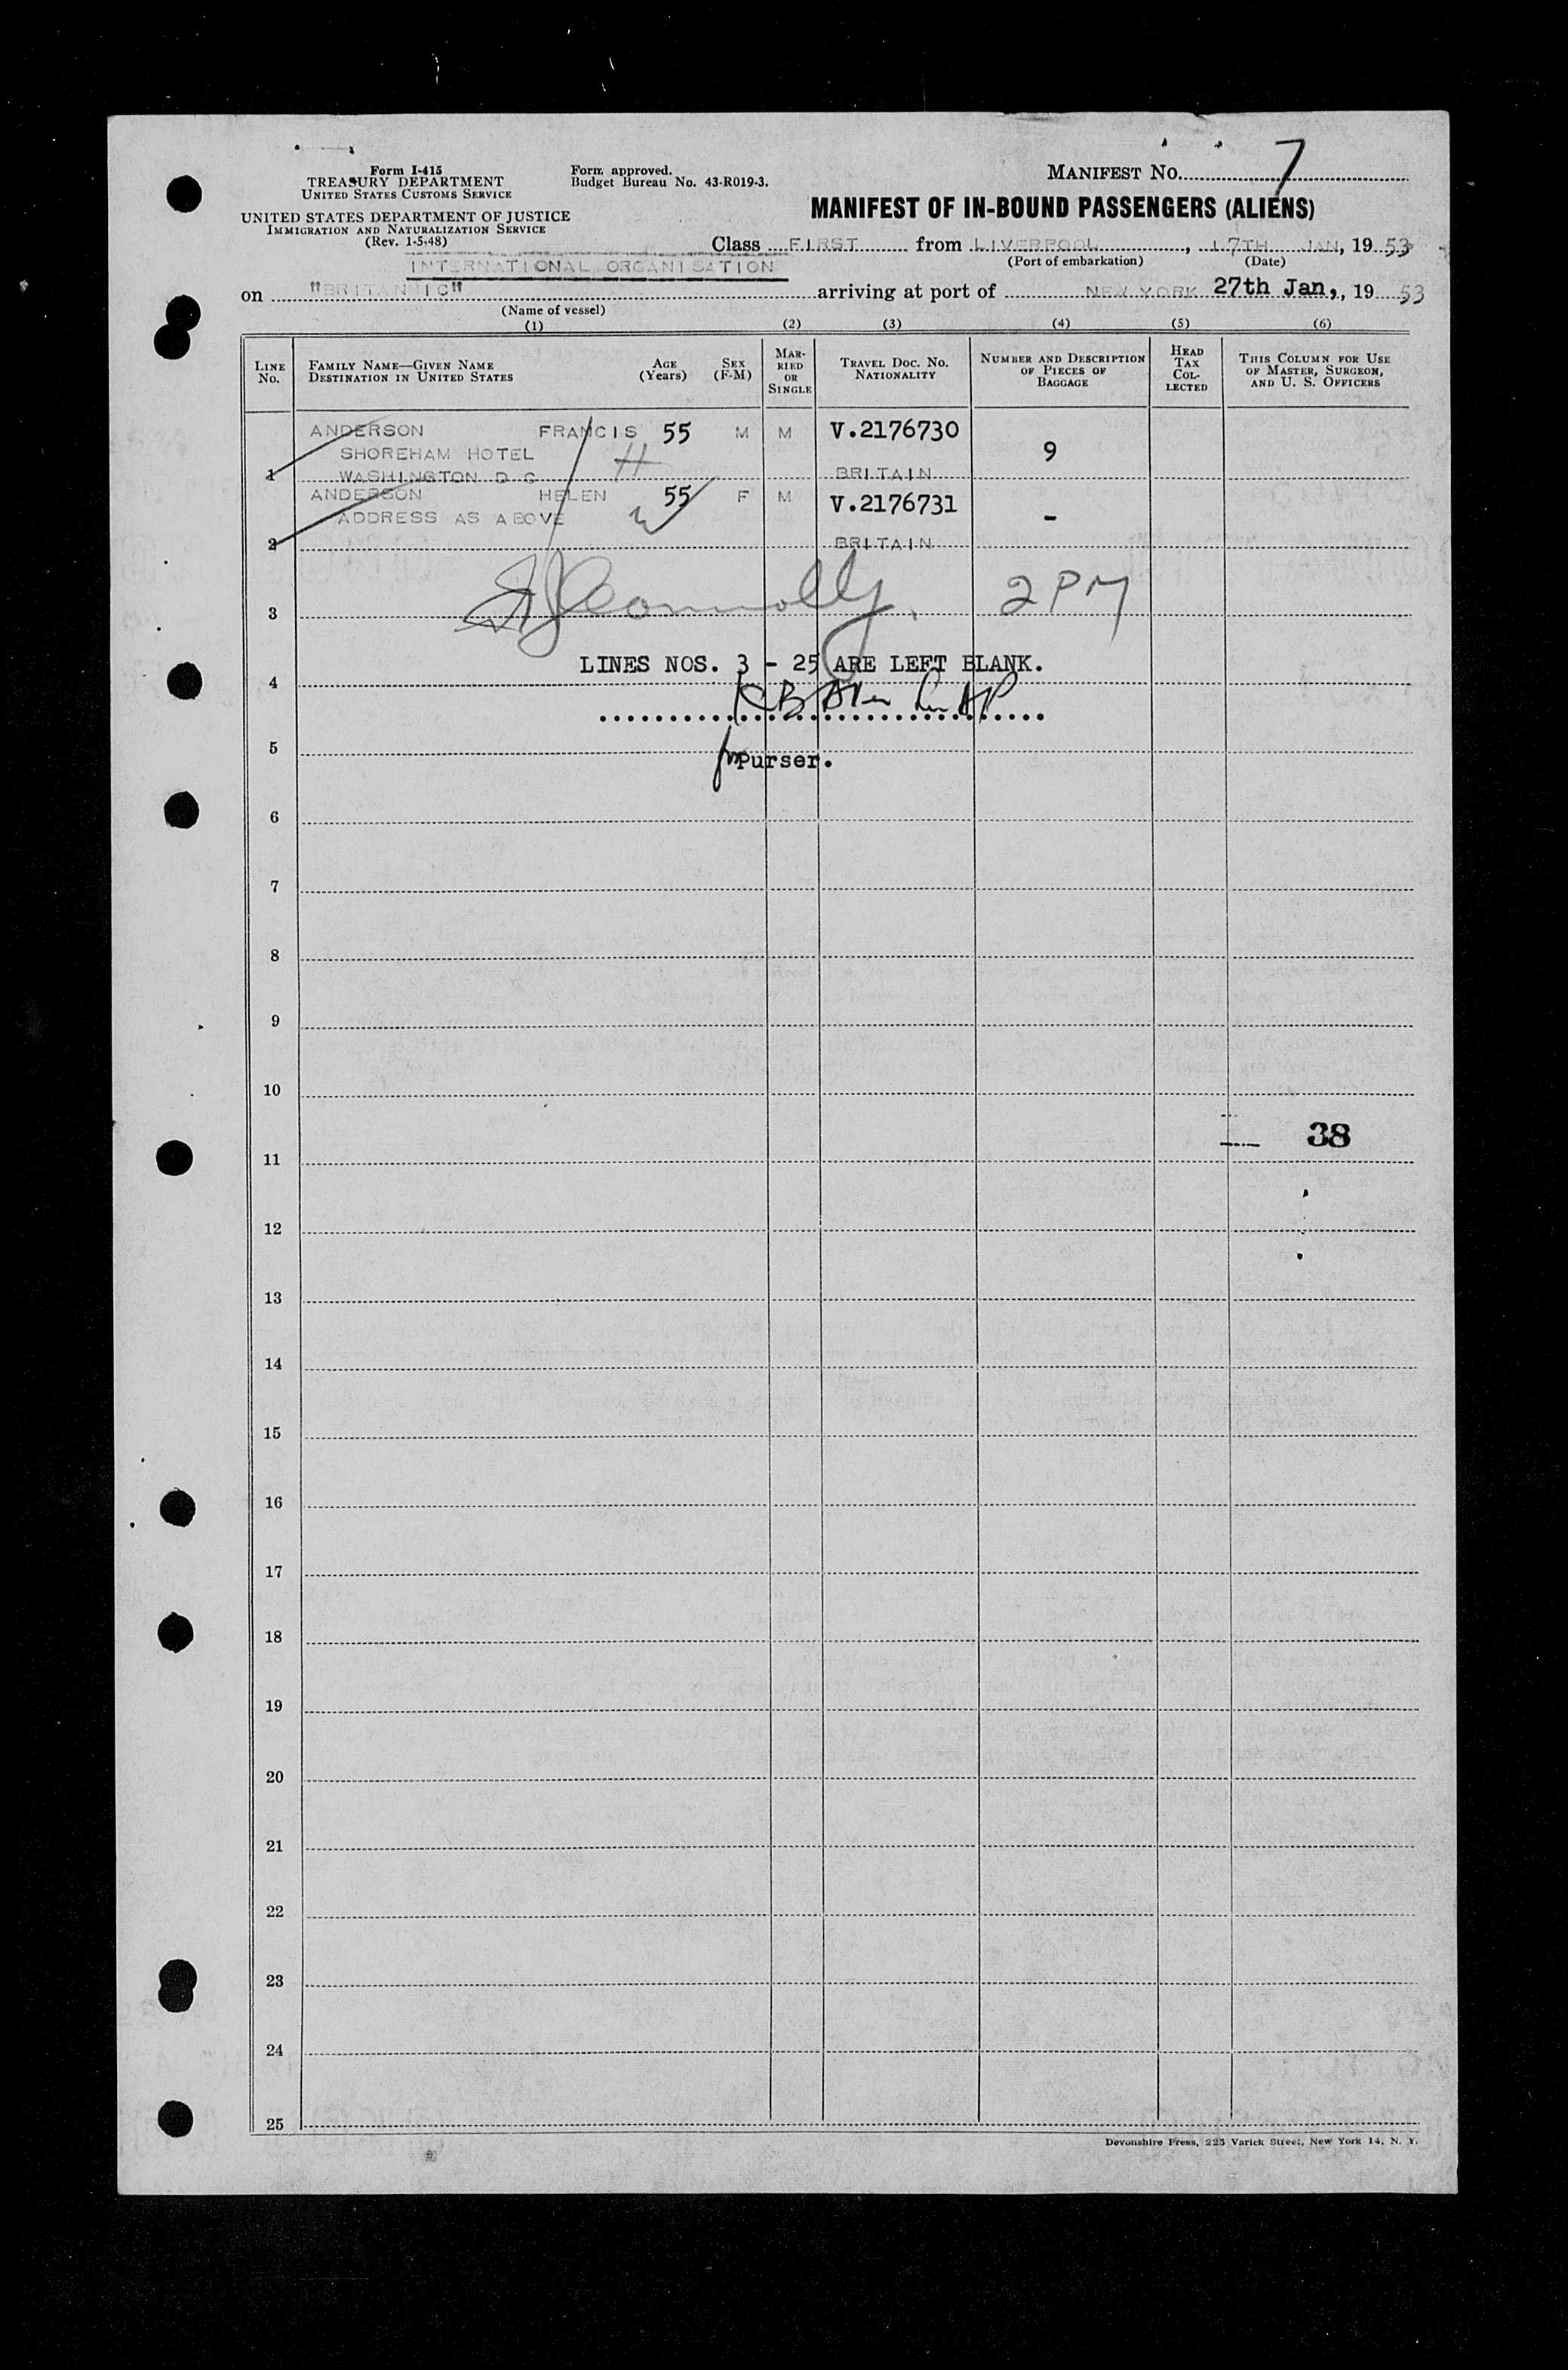 Form I-415
TREASURY DEPARTMENT
UNITED STATES CUSTOMS SERVICE
UNITED STATES DEPARTMENT OF JUSTICE
IMMIGRATION AND NATURALIZATION SERVICE
(Rev. 1-5-48)
Form approved.
Budget Bureau No. 43-R019-3.
MANIFEST NO. 7
MANIFEST OF IN-BOUND PASSENGERS (ALIENS)
Class FIRST from LIVERPOOL, 17TH JAN, 19 53
(Port of embarkation) (Date)
INTERNATIONAL ORGANISATION
on "BRITANNIC" arriving at port of NEW YORK 27th Jan., 19 53
(Name of vessel)
(1) (2) (3) (4) (5) (6)
LINE No. FAMILY NAME—GIVEN NAME DESTINATION IN UNITED STATES AGE (Years) SEX (F-M) MARRIED OR SINGLE TRAVEL DOC. NO. NATIONALITY NUMBER AND DESCRIPTION OF PIECES OF BAGGAGE HEAD TAX COLLECTED THIS COLUMN FOR USE OF MASTER, SURGEON, AND U. S. OFFICERS
ANDERSON FRANCIS 55 M M V.2176730
SHOREHAM HOTEL H 9
1 WASHINGTON D C BRITAIN
ANDERSON HELEN 55 F M V.2176731
ADDRESS AS ABOVE W -
2 BRITAIN
3 Connolly. 2 PM
LINES NOS. 3 - 25 ARE LEFT BLANK.
4
5
for Purser.
6
7
8
9
10
38
11
12
13
14
15
16
17
18
19
20
21
22
23
24
25
Devonshire Press, 225 Varick Street, New York 14, N. Y.